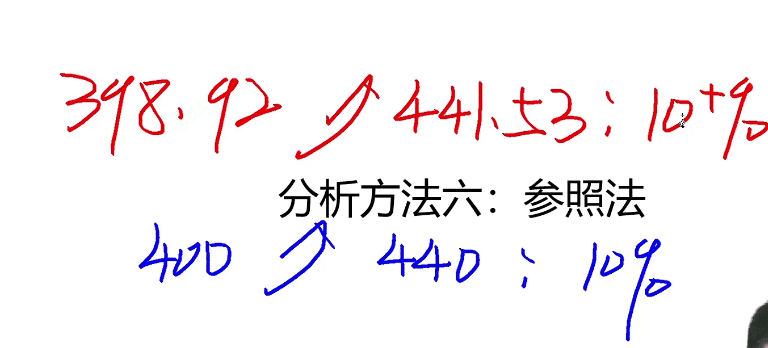 398.92 ↗ 441.53：10⁺%
分析方法六：参照法
400 ↗ 440：10%